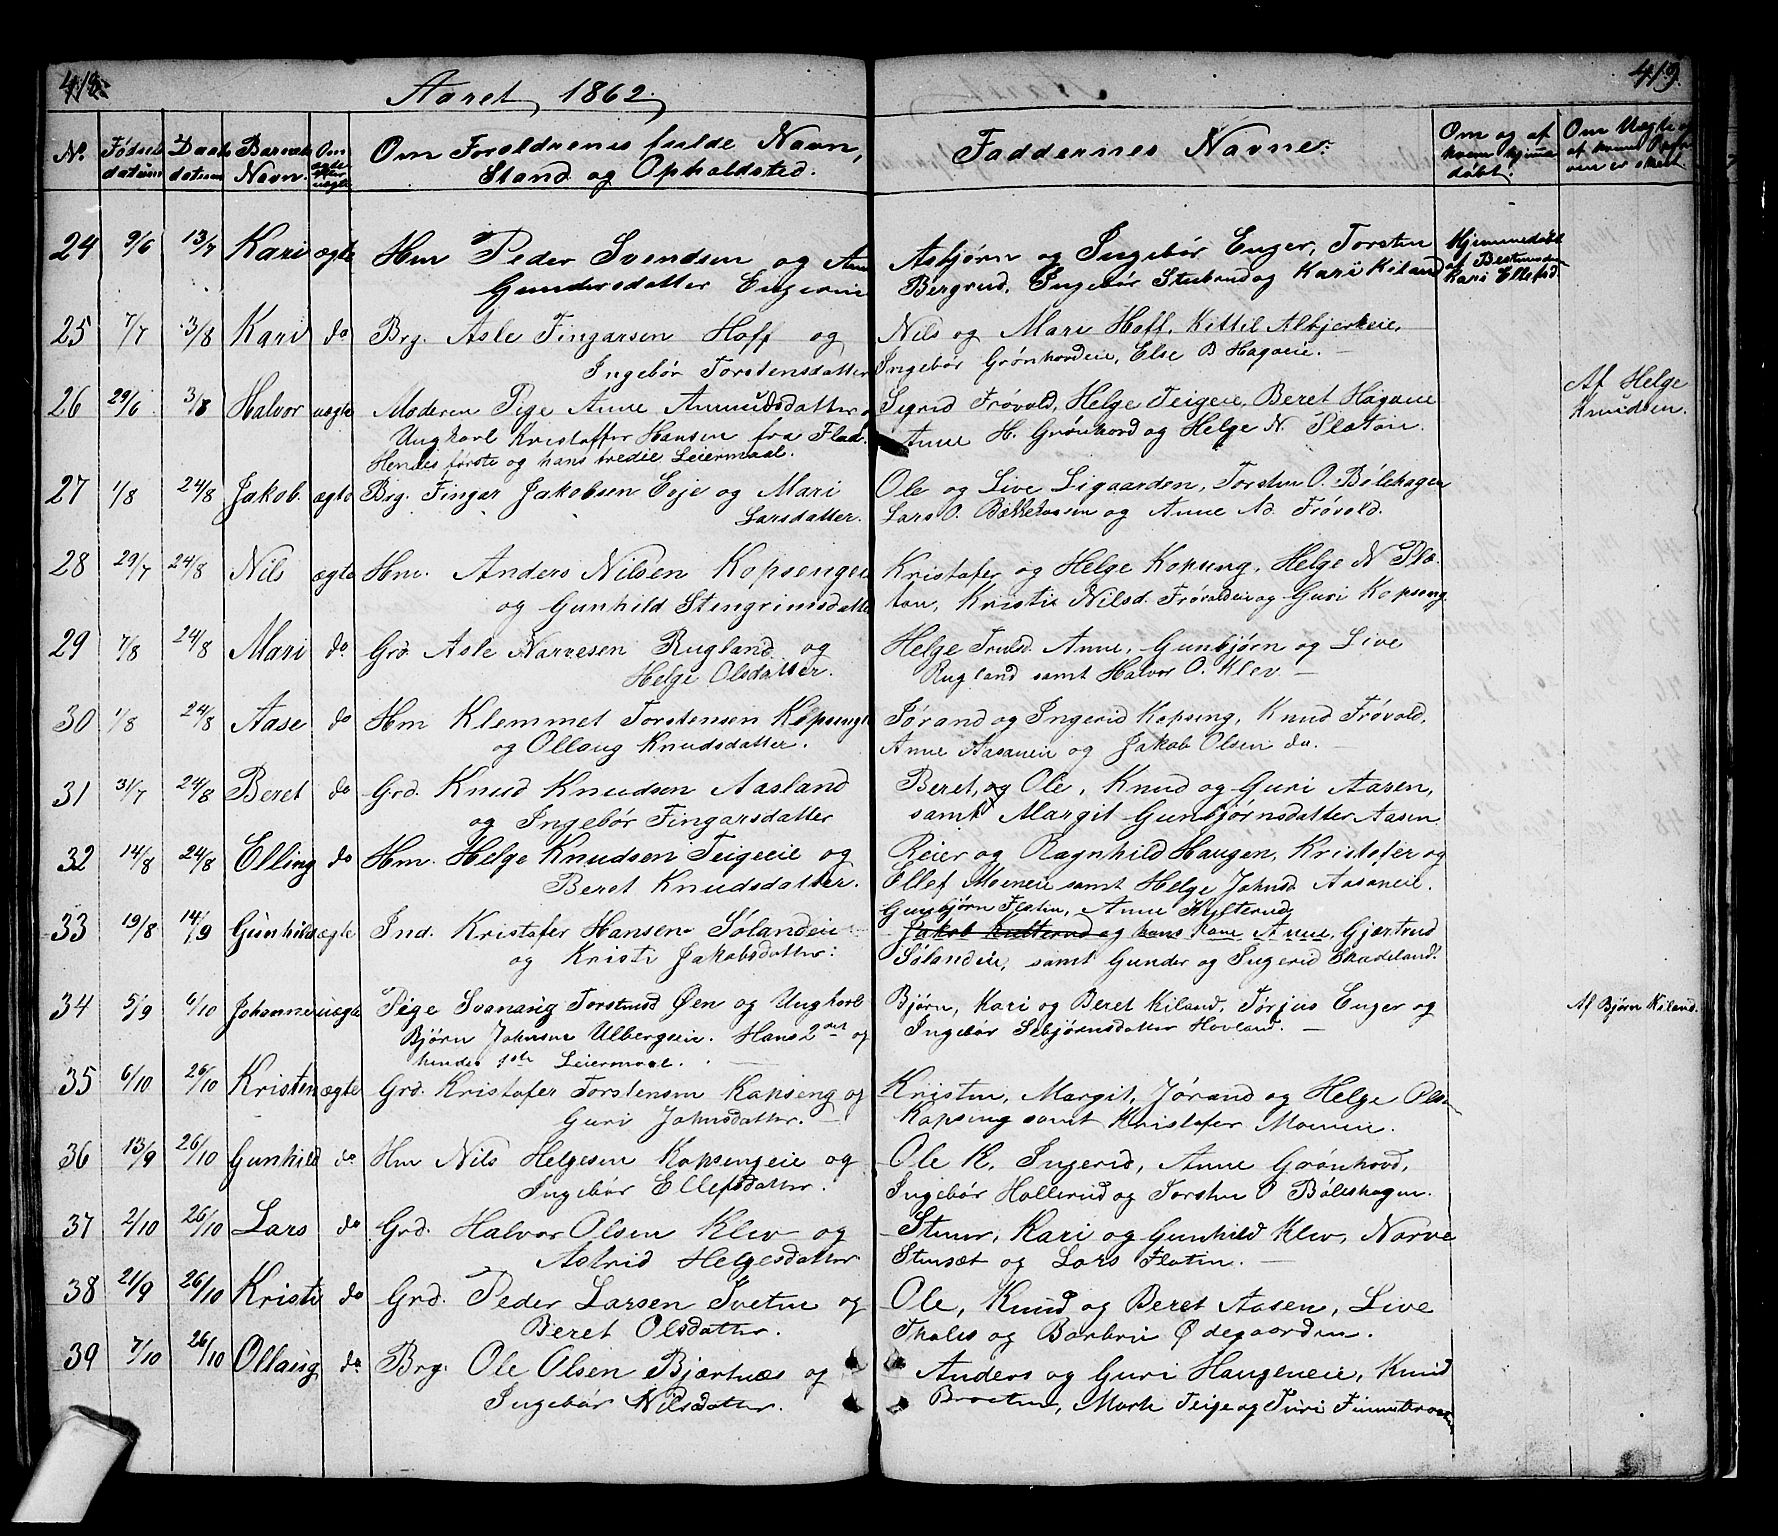 418.
Aaret 1862.
No. Fødsels datum Daabs datum Barnets Navn. Om ægte eller uægte Om Foreldrenes fulde Navn,
Stand og Opholdsted.
24 9/6 13/7 Kari ægte Hm Peder Svendsen og Anne
Gundersdatter Engereie
25 7/7 3/8 Kari do Brg. Asle Fingarsen Hoff og
Ingebør Torstensdatter
26 29/6 3/8 Halvor uegte Moderen Pige Anne Amundsdatter
Ungkarl Kristoffer Hansen fra Flad.
Hendes første og hans tredie Leiermaal.
27 1/8 24/8 Jakob. ægte Brg. Fingar Jakobsen Eeje og Mari
Larsdatter.
28 29/7 24/8 Nils ægte Hm. Anders Nilsen Kopsengeie
og Gunhild Stengrimsdatter
29 7/8 24/8 Mari do. Grd. Asle Narvesen Rugland og
Helge Olsdatter.
30 1/8 24/8 Aase do Hm Klemmet Torstensen Kopseng
og Ollaug Knudsdatter.
31 31/7 24/8 Beret do Grd. Knud Knudsen Aasland
og Ingebør Fingarsdatter
32 14/8 24/8 Elling do Hm. Helge Knudsen Teigeeie og
Beret Knudsdatter.
33 19/8 14/9 Gunhild ægte Ind. Kristofer Hansen Sølandeie
og Kristi Jakobsdatter.
34 5/9 6/10 Johanne uægte Pige Svanaug Torstensd Øen og Ungkarl
Bjørn Johnsen Ulbergseie. Hans 2det og
hendes 1ste Leiermaal.
35 6/10 26/10 Kristen ægte Grd. Kristofer Torstensen Kopseng og
Guri Johnsdatter.
36 13/9 26/10 Gunhild do Hm Nils Helgesen Kopsengeie og
Ingebør Ellefsdatter.
37 2/10 26/10 Lars do Grd. Halvor Olsen Klev og
Astrid Helgesdatter
38 21/9 26/10 Kristi do Grd. Peder Larsen Tveten og
Beret Olsdatter.
39 7/10 26/10 Ollaug do. Brg. Ole Olsen Bjertnæs og
Ingebør Nilsdatter.
419.
Faddernes Navne.
Om og af hvem hjemmedøbt.
Om Uægte
af hvem
er skeet
Asbjørn og Ingebør Enger, Torsten
Bergrud, Ingebør Stubrud og Kari Kiland
Hjemmedøbt
af Bestmoder
Kari Ellefsd
Nils og Mari Hoff, Kittil Albjerkeie,
Ingebør Grønhovdeie, Else B Hagaeie.
Sigrid Frøvold, Helge Teigeie, Beret Hagaeie
Anne H. Grønhovd og Helge N. Platon.
Af Helge
Knudsen.
Ole og Live Ligaarden, Torsten O. Bølehagen
Lars O. Bakkehaasen og Anne Ad. Frøvold.
Kristofer og Helge Kopseng, Helge N Pla-
ton, Kristie Nilsd. Frøvoldeie og Guri Kopseng
Helge Trulsd. Anne, Gunbjørn og Live
Rugland samt Halvor O. Klev
Jørand og Ingerid Kopseng, Knud Frøvold,
Anne Aasaneie og Jakob Olsen do.
Beret, og Ole, Knud og Guri Aasen,
samt Margit Gunbjørnsdatter Aasen
Reier og Ragnhild Haugen, Kristofer og
Ellef Moeneie samt Helge Johnsd Aasaneie.
Gunbjørn Flatin, Anne Kulterud,
Jakob Kulterud og hans Kone Anne, Gjærtrud
Sølandeie, samt Gunder og Ingerid Skadeland.
Bjørn, Kari og Beret Kiland, Torjus Enger og
Ingebør Sebjørnsdatter Hovland.
Af Bjørn Kiland.
Kristen, Margit, Jørand og Helge Olsen
Kopseng samt Kristofer Moeneie.
Ole K, Ingerid, Anne Grønhovd,
Ingebør Hollerud og Torsten O Bøleshagen.
Stener, Kari og Gunhild Klev, Narve
Stensæt og Lars Flatin.
Ole, Knud og Beret Aasen, Live
Tholes og Barbrie Ødegaarden.
Anders og Guri Haugeneie, Knud
Braaten, Mark Teige og Turi